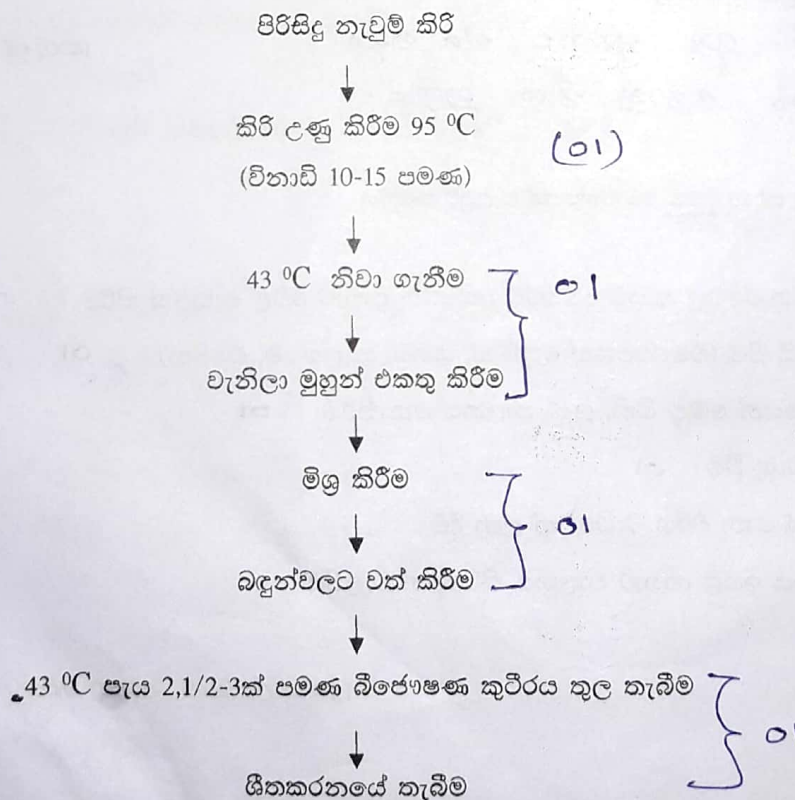 පිරිසිදු නැවුම් කිරි
කිරි උණු කිරීම 95 ⁰C
(01)
(විනාඩි 10-15 පමණ)
43 ⁰C නිවා ගැනීම
01
වැනිලා මුහුන් එකතු කිරීම
මිශ්‍ර කිරීම
01
බඳුන්වලට වත් කිරීම
43 ⁰C පැය 2,1/2-3ක් පමණ බීජෞෂණ කුටීරය තුල තැබීම
01
ශීතකරනයේ තැබීම